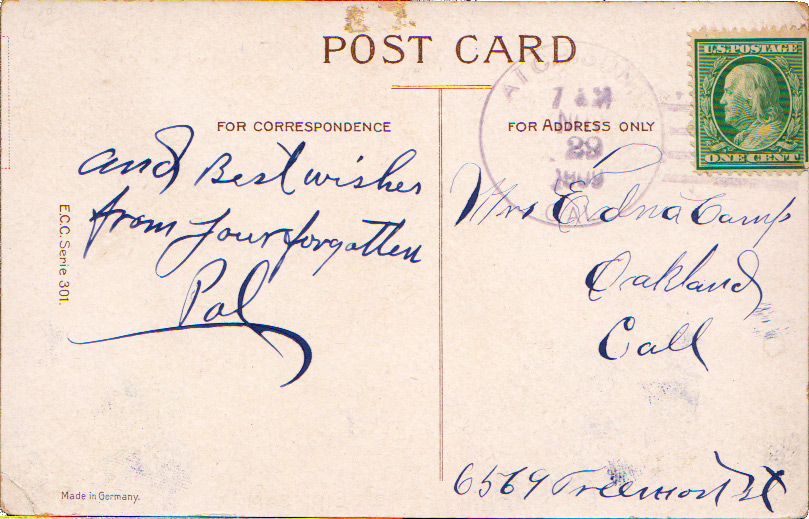 POST CARD
FOR CORRESPONDENCE
FOR ADDRESS ONLY
U.S. POSTAGE
ONE CENT
7 AM
29
1909
CAL
and Best wishes
from your forgotten
Pal
Mrs Edna Camp
Oakland
Call
6569 Freemont St
E.C.C. Serie 301.
Made in Germany.